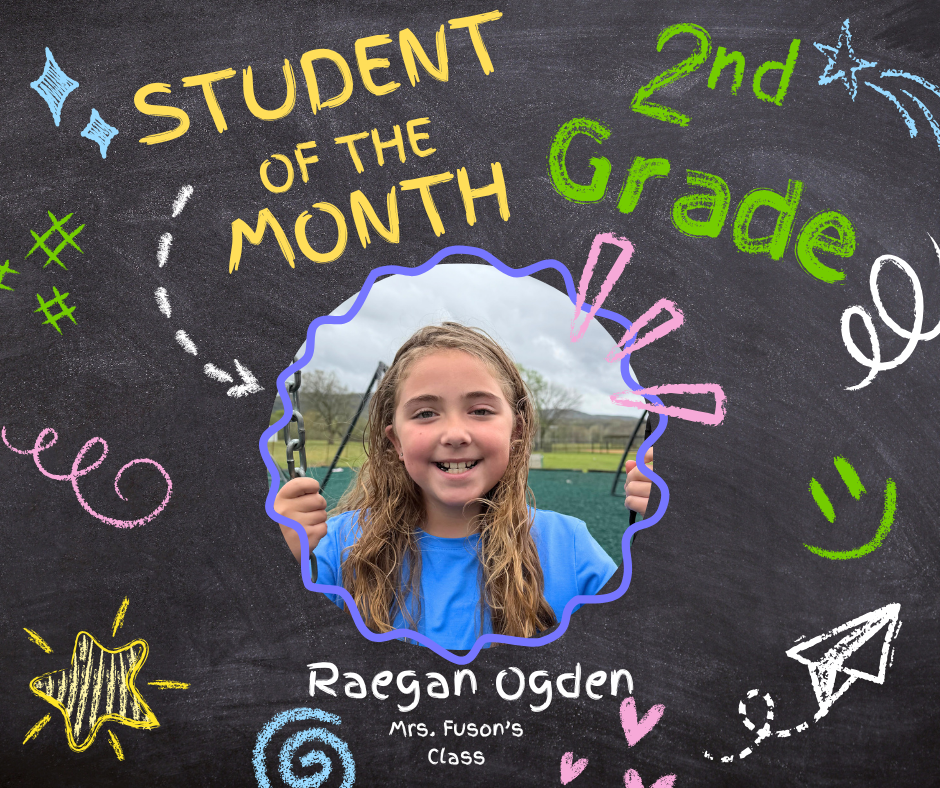 STUDENT
OF THE
MONTH
2nd
Grade
Raegan Ogden
Mrs. Fuson's
Class